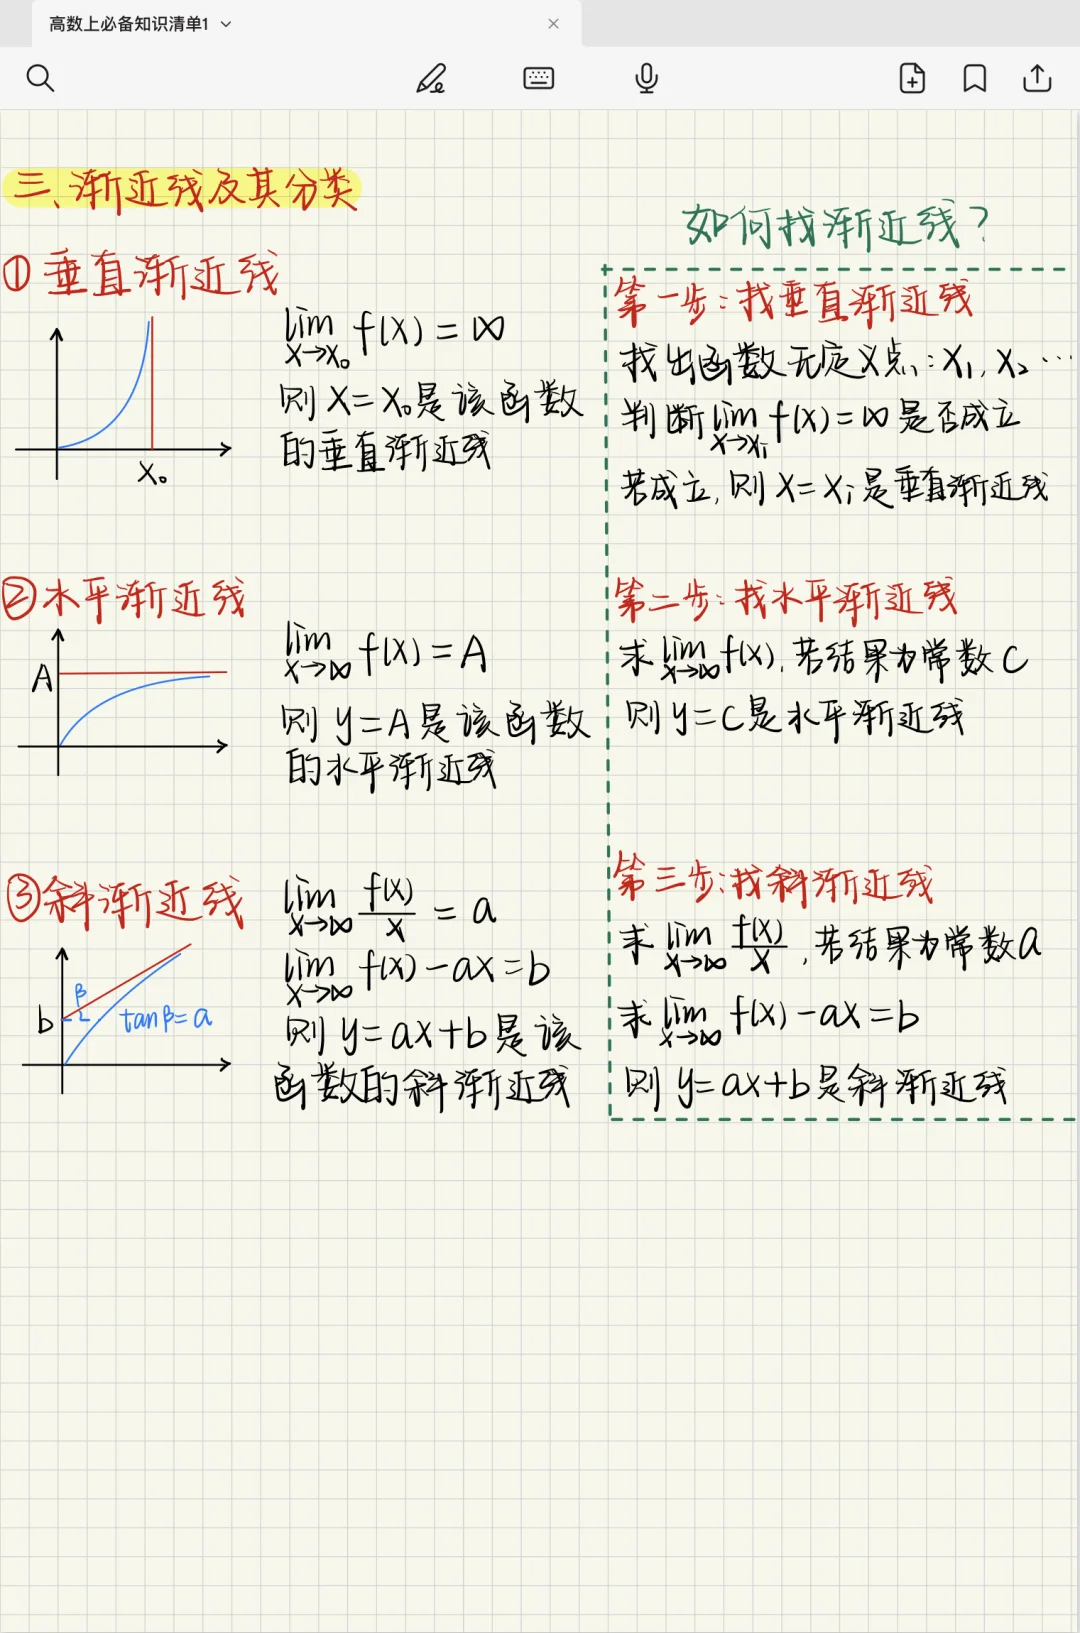 高数上必备知识清单1
三、渐近线及其分类
①垂直渐近线
x₀
lim f(x)=∞
x→x₀
则 x=x₀是该函数
的垂直渐近线
②水平渐近线
A
lim f(x)=A
x→∞
则 y=A是该函数
的水平渐近线
③斜渐近线
b
β
tanβ=a
lim f(x)/x = a
x→∞
lim f(x)-ax=b
x→∞
则 y=ax+b是该
函数的斜渐近线
如何找渐近线?
第一步:找垂直渐近线
找出函数无定义点:x₁,x₂…
判断lim f(x)=∞是否成立
x→xᵢ
若成立,则 x=xᵢ是垂直渐近线
第二步:找水平渐近线
求lim f(x),若结果为常数C
x→∞
则 y=C是水平渐近线
第三步:找斜渐近线
求 lim f(x)/x ,若结果为常数a
x→∞
求 lim f(x)-ax=b
x→∞
则 y=ax+b是斜渐近线